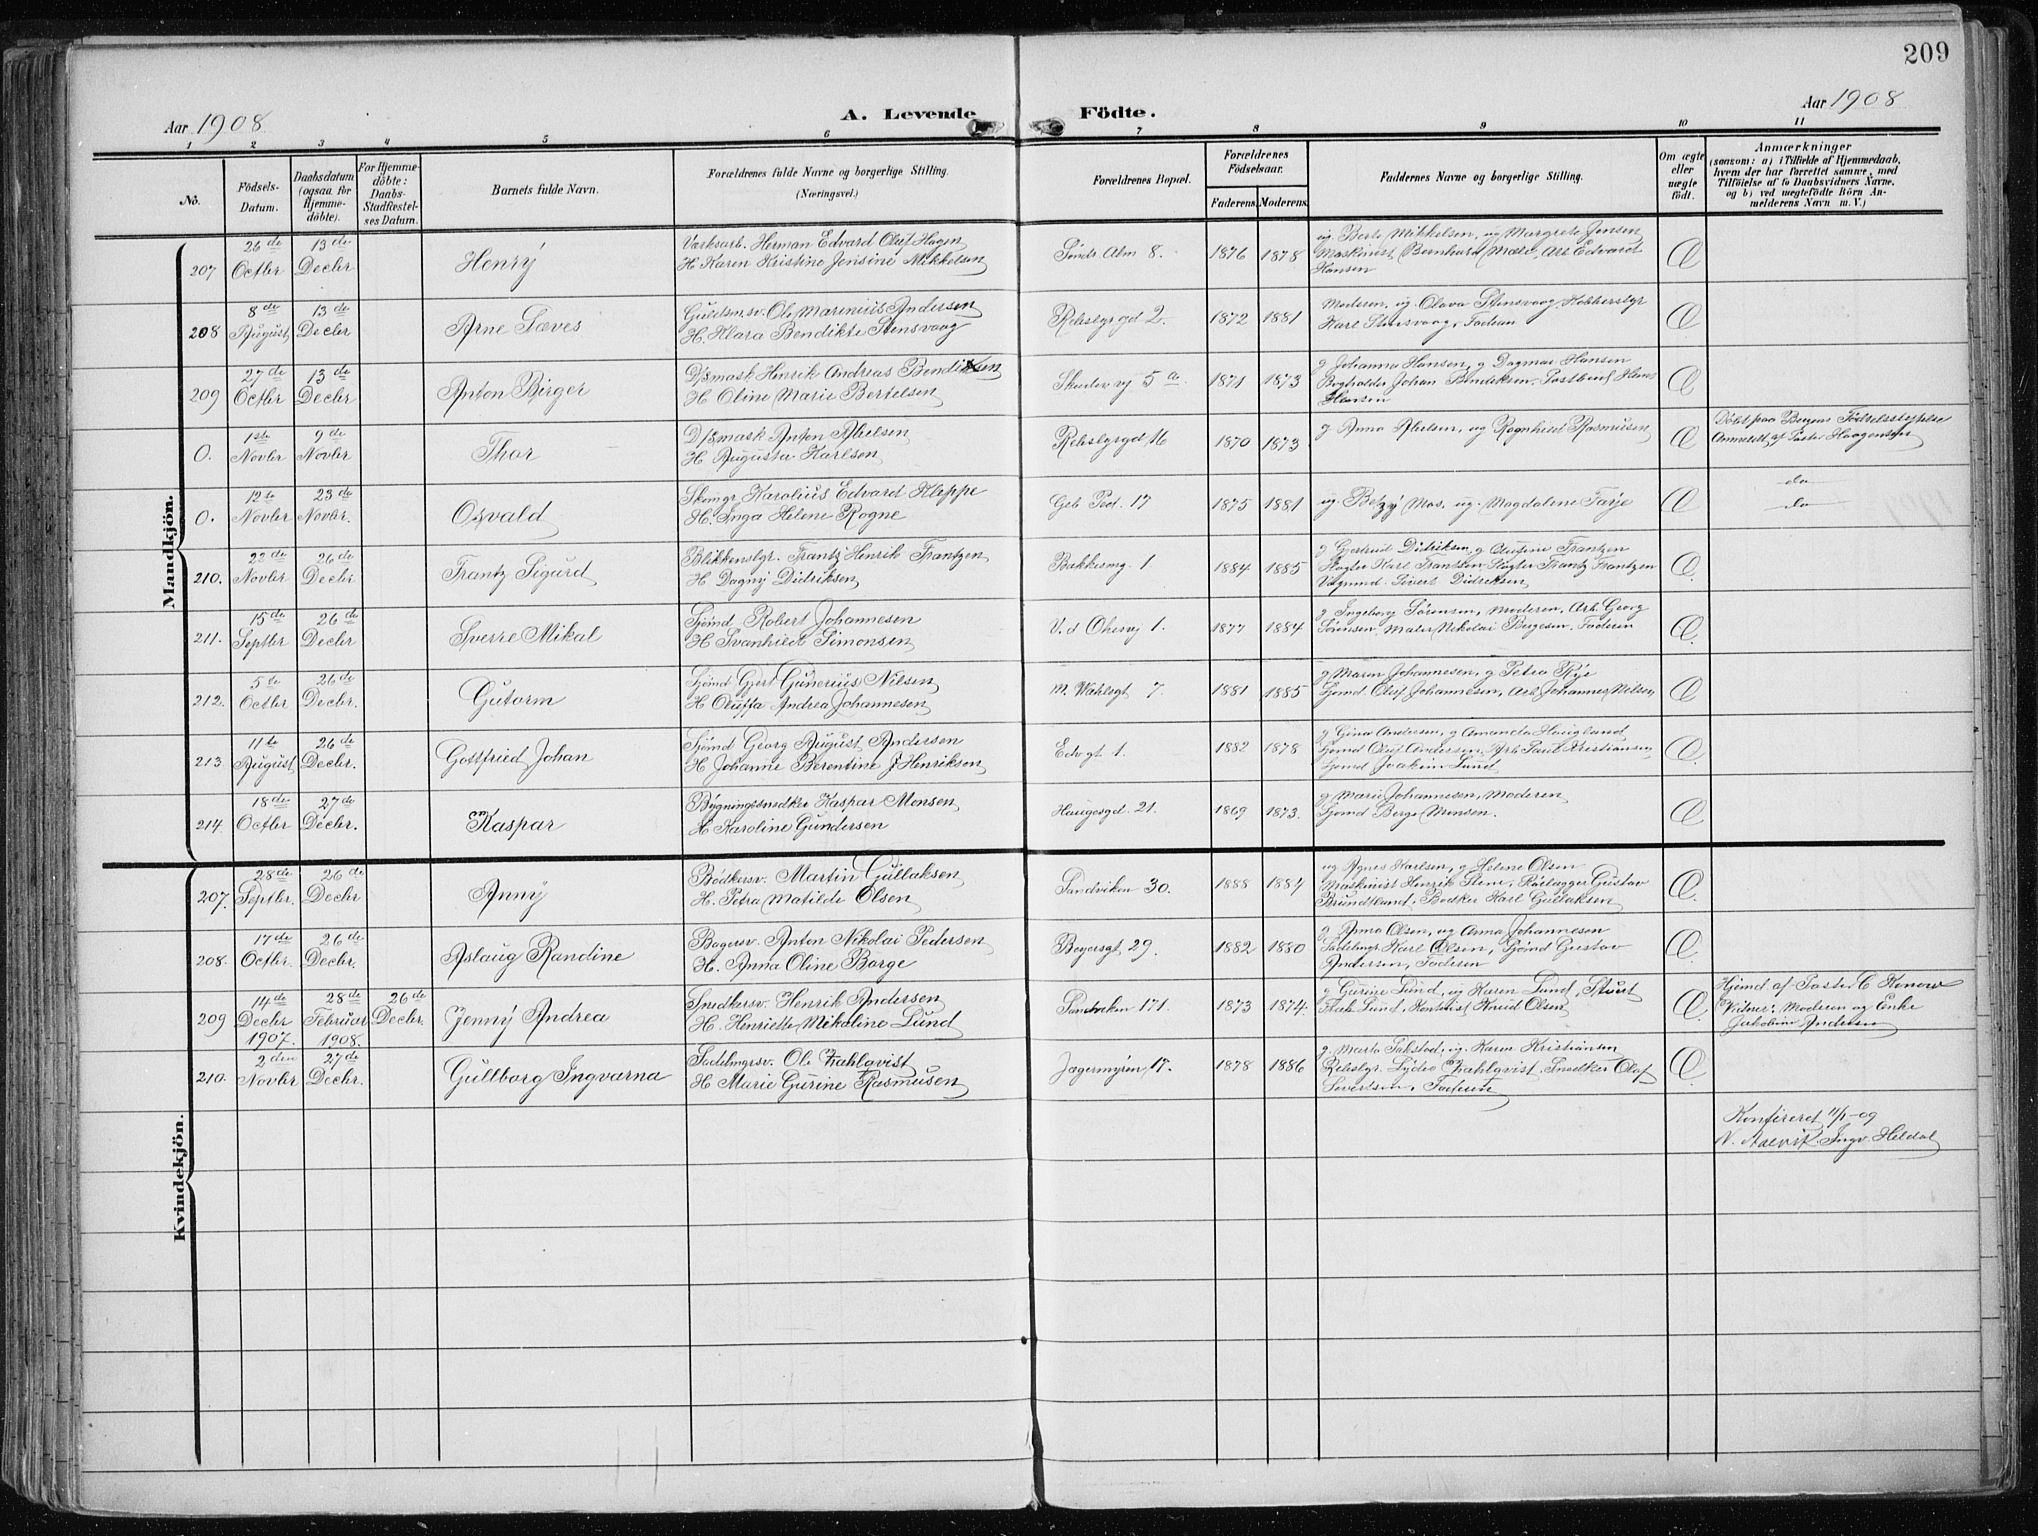 209
Aar 1908
A. Levende Födte.
Aar 1908
1 2 3 4 5 6 7 8 9 10 11
No.
Födsels-Datum.
Daabsdatum (ogsaa for Hjemmedöbte).
For Hjemmedöbte: Daabs-Stadfæstelses Datum.
Barnets fulde Navn.
Forældrenes fulde Navne og borgerlige Stilling.
(Næringsvei.)
Forældrenes Bopæl.
Forældrenes Födselsaar.
Faderens. Moderens.
Faddernes Navne og borgerlige Stilling.
Om ægte eller uægte födt.
Anmærkninger
(saasom: a) i Tilfælde af Hjemmedaab, hvem der har forrettet samme, med Tilföielse af to Daabsvidners Navne, og b) ved uegtefödte Börn Anmelderens Navn m. V.)
Mandkjön.
207 26de Octbr 13de Decbr Henrÿ
Værksarb. Herman Edvard Oluf Hagen
H. Karen Kristine Jensine Mikkelsen
Söndr. Alm 8. 1876 1878
ug. Berte Mikkelsen, ug Margrete Jensen
Maskinist Bernhard Mæle, Arb Edvardt
Hansen
208 8de August 13de Decbr Arne Sæves
Guldsm.sv. Ole Marenius Andersen
H. Klara Bendikte Stensvaag
Rebslgrgd 2. 1872 1881
Moderen, ug. Olava Stensvaag,
Karl Stensvaag, Faderen
209 27de Octbr 13de Decbr Anton Birger
D/smask Henrik Andreas Bendiksen
H. Oline Marie Bertelsen
5a 1871 1873
g Johanna Hansen, g Dagmar Hansen
Bogholder Johan Bendiksen, Postbud Hans
Hansen
0. 1ste Novbr 9de Novbr Thor
D/smask Anton Abelsen
H. Augusta Karlsen
Rebslgrgd 16 1870 1873
g Anna Abelsen, ug Ragnhild Rasmusen
Döbt paa Bergens Födselsstiftelse
Anmeldt af Pastor Haagensen
0. 12te Novbr 23de Novbr. Osvald
Skomgr Karolius Edvard Kleppe
H. Inga Helene Rogne
Geb Ped. 17 1875 1881
ug. Betzÿ Mos, ug. Magdalene Farje
do
do
210. 22de Novbr 26de Decbr Frantz Sigurd
Blikkenslgr. Frantz Henrik Frantzen
H Dagnÿ Didriksen
Bakkesmg. 1 1884 1885
g Gjertrud Didriksen, g Olufine Frantzen
Slagter Karl Frantzen Slagter Frantz Frantzen
Vognmd. Sivert Didriksen
211. 15de Septbr 26de Decbr Sverre Mikal
Sjömd Robert Johannesen
H Svanhild Simonsen
1. 1877 1884
g Ingeborg Sörensen, Moderen, Arb. Georg
Sörensen, Maler Nikolai Bergesen, Faderen
212. 5te Octbr 26de Decbr. Gutorm
Sjömd Gjert Gunerius Nilsen
H Oluffa Andrea Johannesen
m. Wahlsgt 7. 1881 1885
g Maren Johannesen, g Petra Rye
Sjömd Oluf Johannesen, Arb. Johannes Nilsen
213 11te August 26de Decbr. Gottfried Johan
Sjömd Georg August Andersen
H Johanne Berentine J Henriksen
Edvgt 1. 1882 1878
g Gina Andersen, g Amanda Haugland
Sjömd Oluf Andersen, Arb. Paul Kristiansen,
Sjömd Joakim Lund
214. 18de Octbr 27de Decbr. Kaspar
Bygningssnedker Kaspar Monsen
H Karoline Gundersen
Haugesgd. 21. 1869 1873.
g Marie Johannesen, Moderen
Sjömd Berge Monsen.
Kvindekjön.
207. 28de Septbr. 26de Decbr Annÿ
Bödkersv. Martin Gullaksen
H. Petra Matilde Olsen
Sandviken 30. 1888 1884
ug Agnes Karlsen, g Helene Olsen
Maskinist Henrik Stene, Rörlægger Gustav
Brundtland, Bödker Karl Gullaksen
208. 17de Octbr. 26de Decbr. Aslaug Randine
Bagersv. Anton Nikolai Pedersen
H. Anna Oline Borge
Beyersgt 29. 1882 1880
g. Anna Olsen, ug Anna Johannesen
Sadelmgr Karl Olsen, Sjömd Gustav
Andersen, Faderen
209 14de Decbr 1907. 28de Februar 1908. 26de Decbr. Jennÿ Andrea
Snedkersv. Henrik Andersen
H. Henriette Mikaline Lund
Sandviken 171. 1873 1874.
g Gurine Lund, ug Karen Lund,
Lund, Kontorist Knud Olsen
Hjemd af Pastor C Konow
Vidner: Moderen og Enke
Jakobine Andersen
210. 2den Novbr 27de Decbr. Gullborg Ingvarna
Sadelmgrsv. Ole Fahlqvist
H Marie Gurine Rasmusen
Jægermyren 17. 1878 1886
g. Marta Sakstad, ug. Karen Kristiansen
Rebslgr. Fahlqvist, Snedker Olaf
Severtsen, Faderen
Konfereret 11/1-09
N. Aalvik. Ingv. Heldal